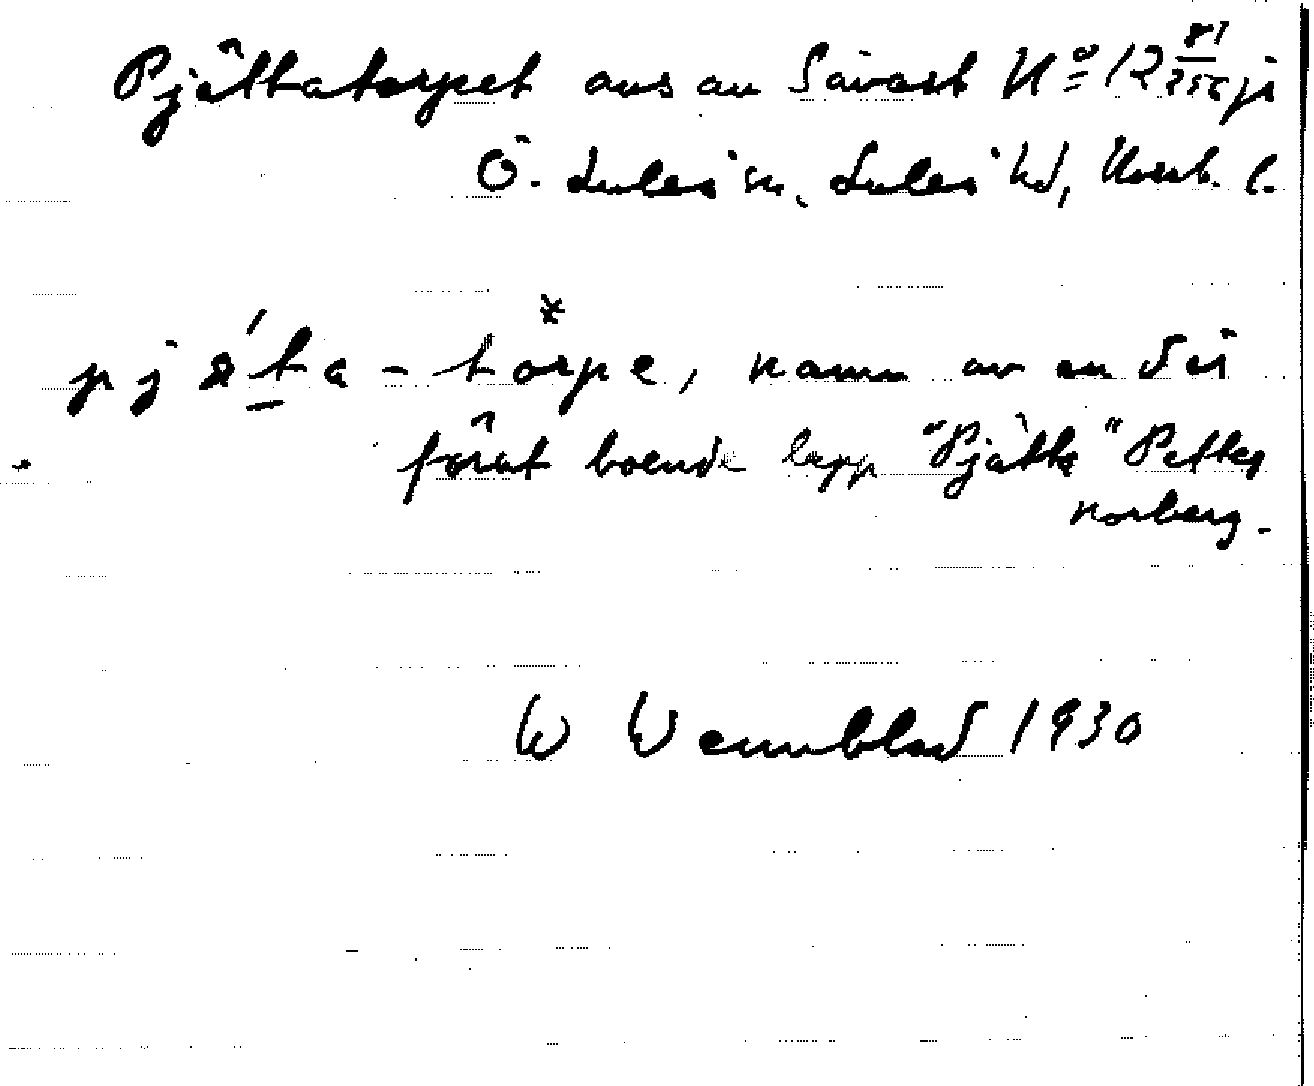 Pjättatorpet ans au Sävast No 12 på
Ö. Luleå sn, Luleå hd, Norrb. l.
pjäta-törpe, namn av en där
förut boende lapp "Pjätt" Petter
Norberg.
W Wennblad 1930